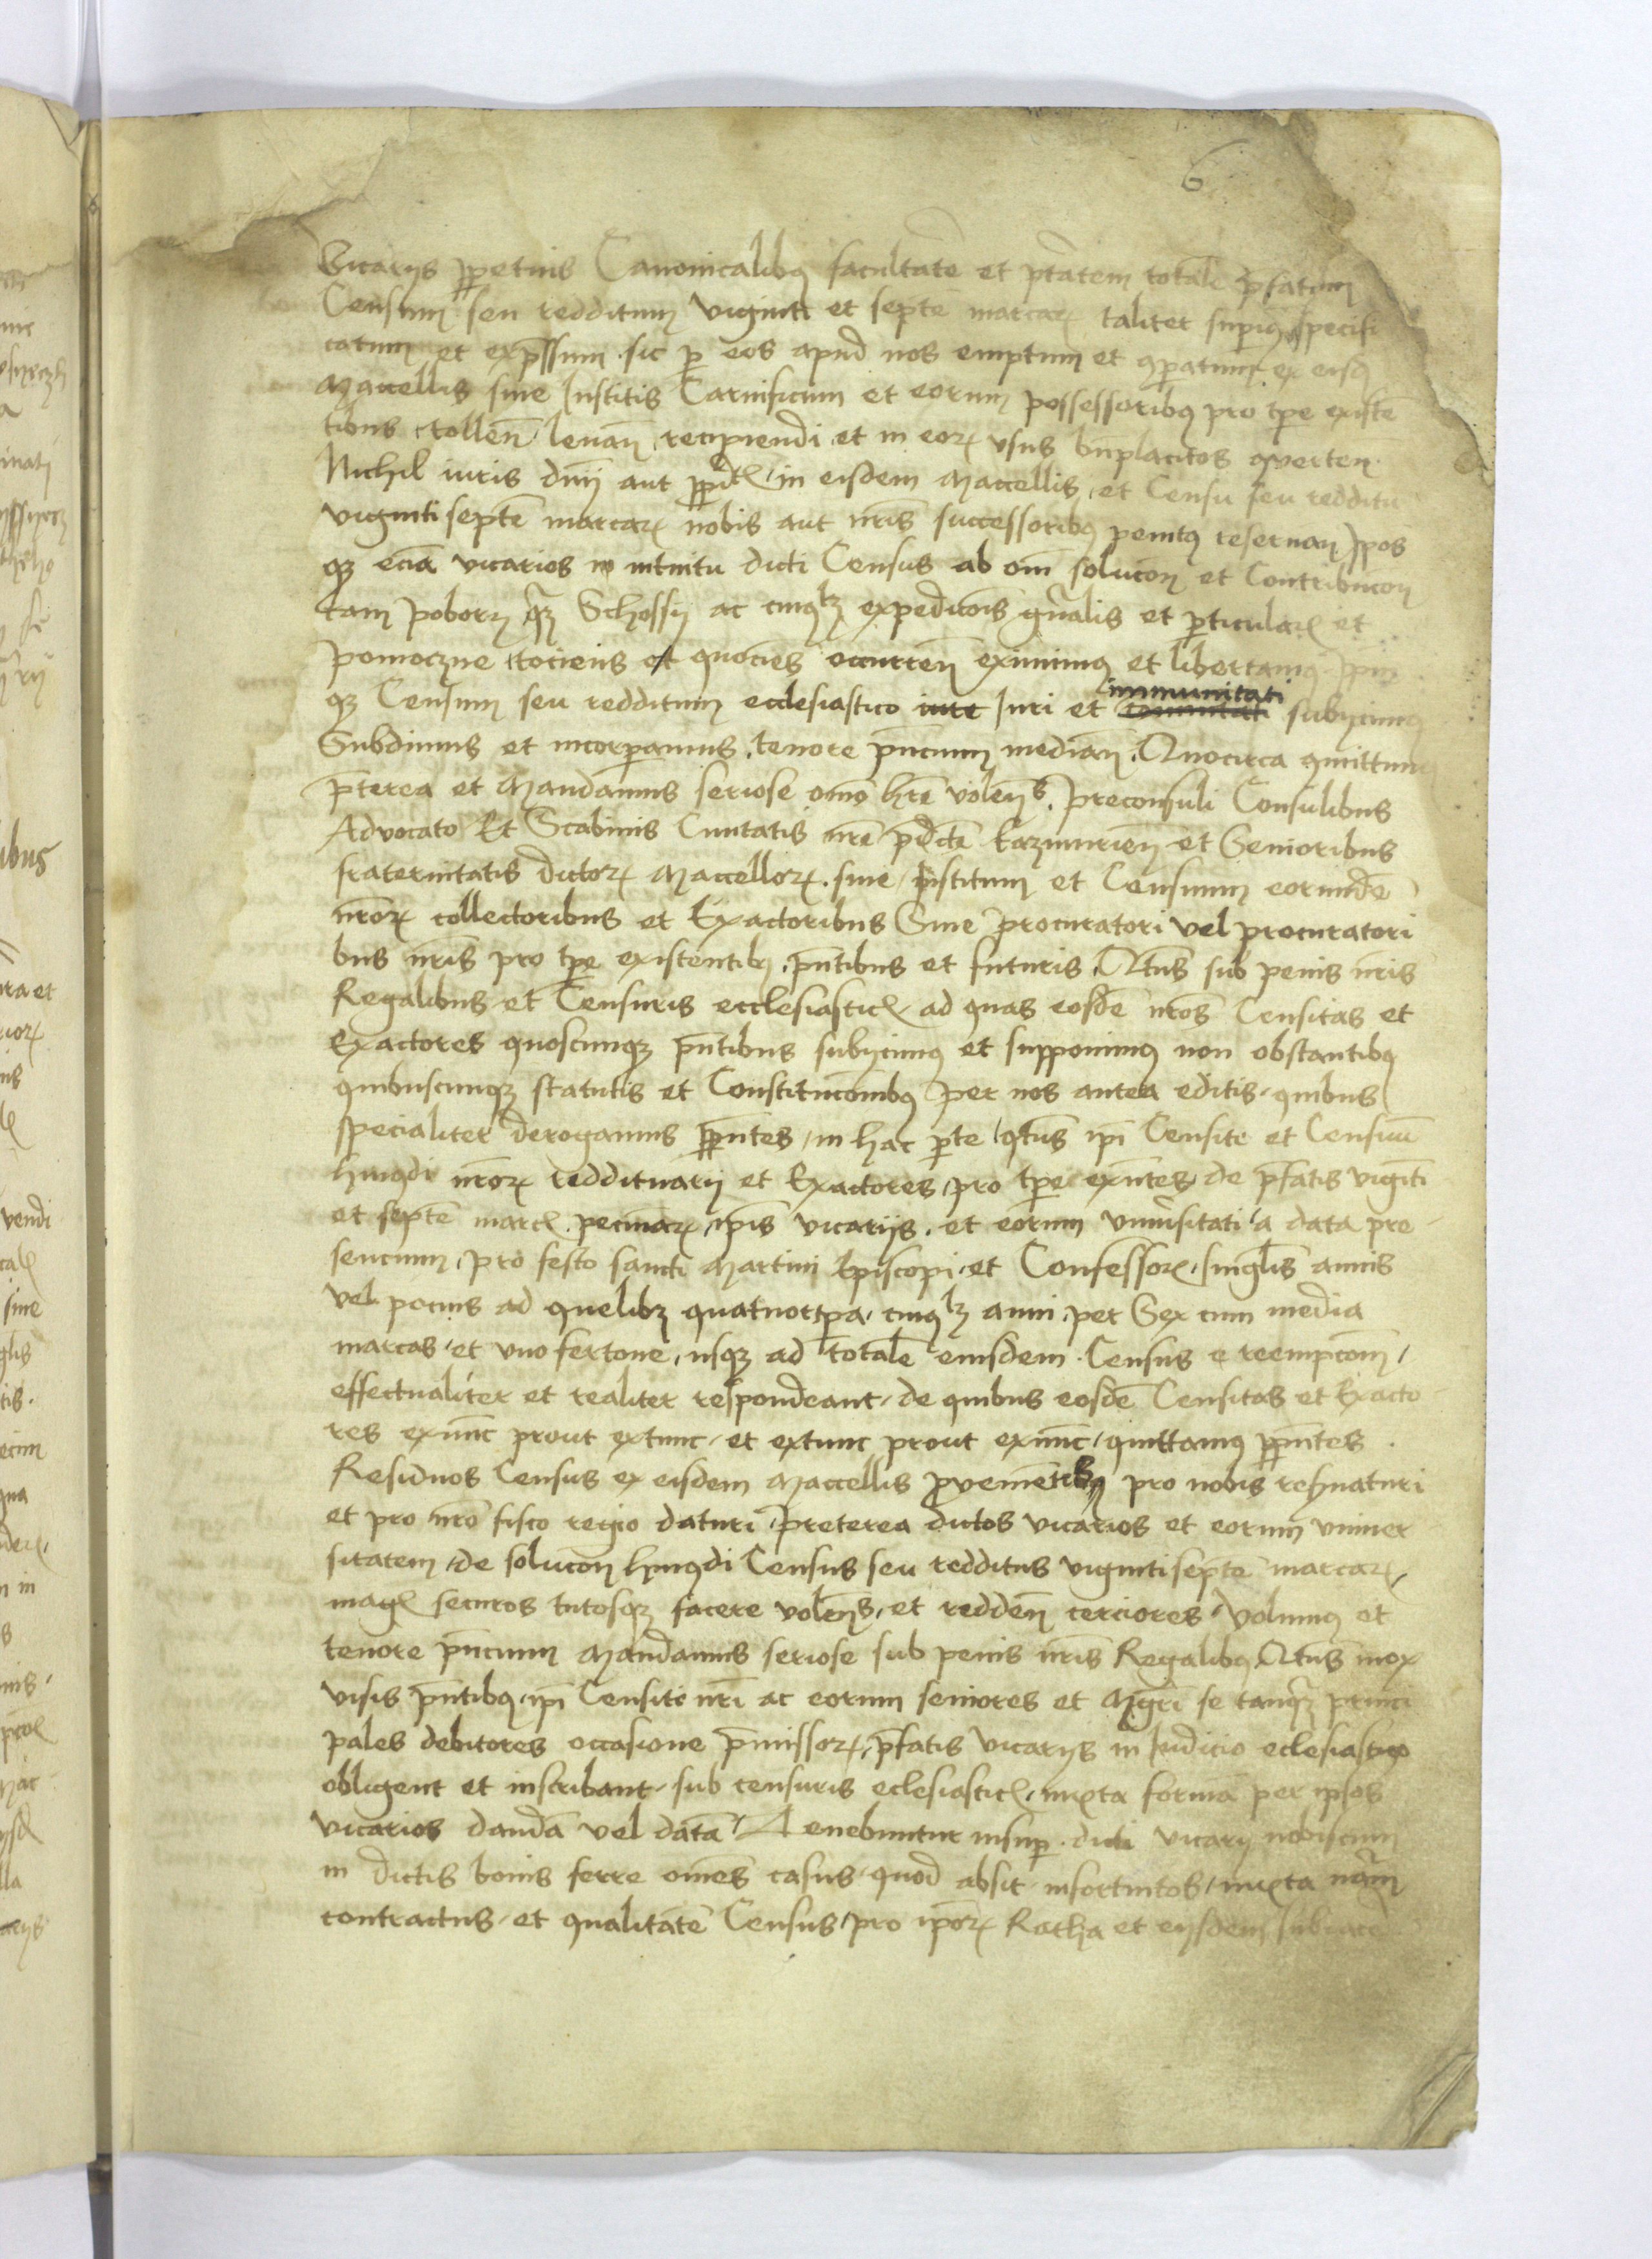 6
Vicarijs ꝑpetuis Canonicalibꝫ facultatē et ptātem totalē p̄fatum
Censum seu redditum viginti et septē marcaꝝ taliter suꝑiꝰ specifi
catum et exp̄ssum sic ꝑ eos apud nos emptum et ꝯparatum ex eisdē
Maccellis siue Institis Carnificum et eorum possessoribꝰ pro tꝑe existē
tibus tollen̄ leuan̄ recipiendi et in eoꝝ vsus bn̄placitos ꝯuerten
Nichil iuris dnij aut in eisdem Maccellis et Censu seu redditu
viginti septē marcaꝝ nobis aut nr̄is successoribꝰ penitꝰ reseruan̄ Ipos
qꝫ eciā vicarios in intuitu dicti Census ab om̄i soluciōn et Contribuciōn
tam poboꝝ qꝫ Schossij ac cuiuslꝫ expediciōis gn̄alis et ꝑticularꝭ et
pomoczne tociens et quocies occurren̄ eximimꝰ et libertamꝰ Ipm̄
qꝫ Censum seu redditum ecclesiastico iure Iuri et comunitati immunitati subijcimꝰ
Subdimus et incorꝑamus tenore pn̄cium median̄ Quocirca ꝯmittimꝰ
p̄terea et Mandamus seriose om̄o hr̄e volen̄s Preconsuli Consulibus
Advocato Et Scabinis Ciuitatis nr̄e p̄dc̄e Kazimirien̄ et Senioribus
fraternitatis dictoꝝ Maccelloꝝ siue institum et Censuum eorundē
nr̄oꝝ collectoribus et Exactoribus Siue procuratori vel procuratori
bus nr̄is pro tꝑe existentibꝫ pn̄tibus et futuris Qtūs sub penis nr̄is
Regalibus et Censuris ecclesiasticꝭ ad quas eosdē nr̄os Censitas et
Exactores quoscunqꝫ pn̄tibus subijcimꝰ et supponimꝰ non obstantibꝰ
quibuscunqꝫ statutis et Constituciōnibꝰ per nos antea editis quibus
specialiter derogamus ꝑpn̄tes in hac ꝑte qtūs ip̄i Censite et Censuū
hmōdi nr̄oꝝ reddituarij et Exactores pro tꝑe exn̄tes de p̄fatis viginti
et septē marcꝭ pecuniaꝝ ip̄is vicarijs et eorum vniūsitati a data pre
sencium pro festo sancti Martini Episcopi et Confessorꝭ singl̄is annis
vel pocius ad quelibꝫ quatuortꝑa cuiuslꝫ anni per Sex cum media
marcas et vno fertone usqꝫ ad totalē eiusdem Census e reempciōm
effectualiter et realiter respondeant de quibus eosdē Censitas et Exacto
res exnūc prout extunc et extunc prout exnūc quittamꝰ ꝑpn̄tes
Residuos Census ex eisdem Maccellis ꝓuenientibꝫ pro nobis reseruaturi
et pro nr̄o fisco regio daturi Preterea dictos vicarios et eorum vniuer
sitatem de soluciōn hmōdi Census seu redditus viginti septē marcaꝝ
magꝭ securos tutosqꝫ facere volen̄s et redden̄ cerciores Volumꝰ et
tenore pn̄cium Mandamus seriose sub penis nr̄is Regalibꝰ Qtūs mox
visis pn̄tibꝰ ip̄i Censite nr̄i ac eorum seniores et Mgr̄i se tanqꝫ princi
pales debitores occasione p̄missoꝝ p̄fatis vicarijs in Iudicio eclesiastico
obligent et inscribant sub censuris eclesiasticꝭ iuxta formā per ipsos
vicarios dandā vel datā Tenebuntur insuꝑ dicti vicarij nobiscum
in dictis bonis ferre omēs casus quod absit infortuitos iuxta nāturam
contractus et qualitatē Census pro ip̄oꝝ Ratha et eijsdem subiacē